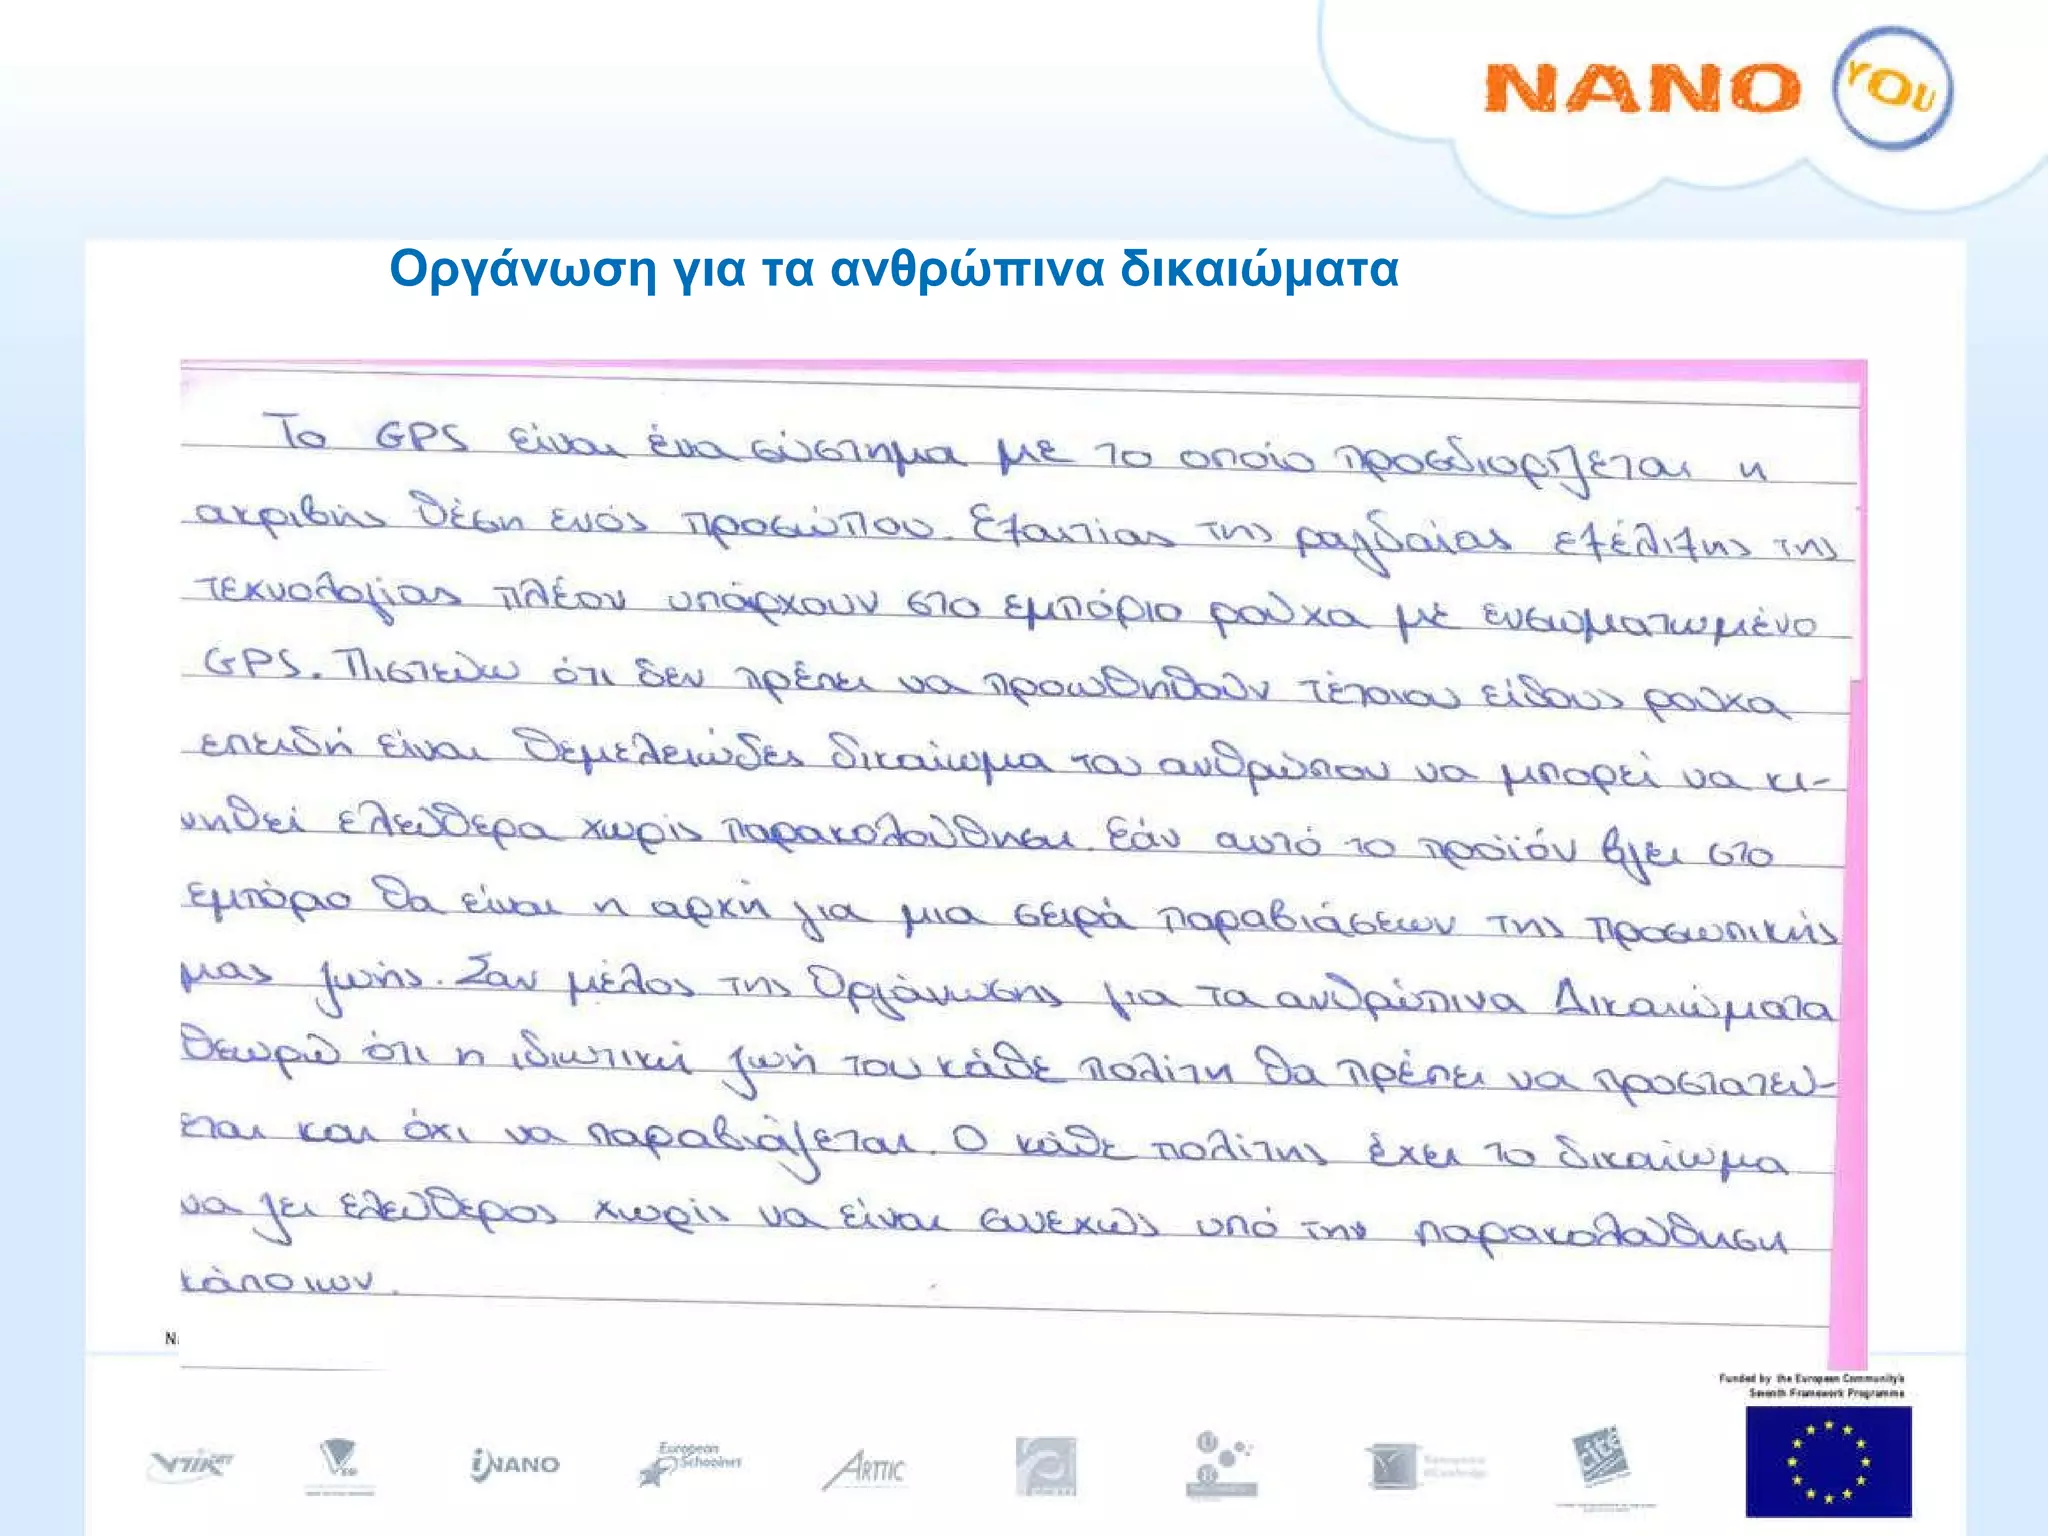 NANO YOU
Οργάνωση για τα ανθρώπινα δικαιώματα
Το GPS είναι ένα σύστημα με το οποίο προσδιορίζεται η
ακριβής θέση ενός προσώπου. Εξαιτίας της ραγδαίας εξέλιξης της
τεχνολογίας πλέον υπάρχουν στο εμπόριο ρούχα με ενσωματωμένο
GPS. Πιστεύω ότι δεν πρέπει να προωθηθούν τέτοιου είδους ρούχα
επειδή είναι θεμελειώδες δικαίωμα του ανθρώπου να μπορεί να κι-
νηθεί ελεύθερα χωρίς παρακολούθηση. Εάν αυτό το προϊόν βγει στο
εμπόριο θα είναι η αρχή για μια σειρά παραβιάσεων της προσωπικής
μας ζωής. Σαν μέλος της Οργάνωσης για τα ανθρώπινα Δικαιώματα
θεωρώ ότι η ιδιωτική ζωή του κάθε πολίτη θα πρέπει να προστατεύ-
εται και όχι να παραβιάζεται. Ο κάθε πολίτης έχει το δικαίωμα
να ζει ελεύθερος χωρίς να είναι συνεχώς υπό την παρακολούθηση
κάποιων.
Funded by the European Community's
Seventh Framework Programme
iNANO
European
Schoolnet
ARTTIC